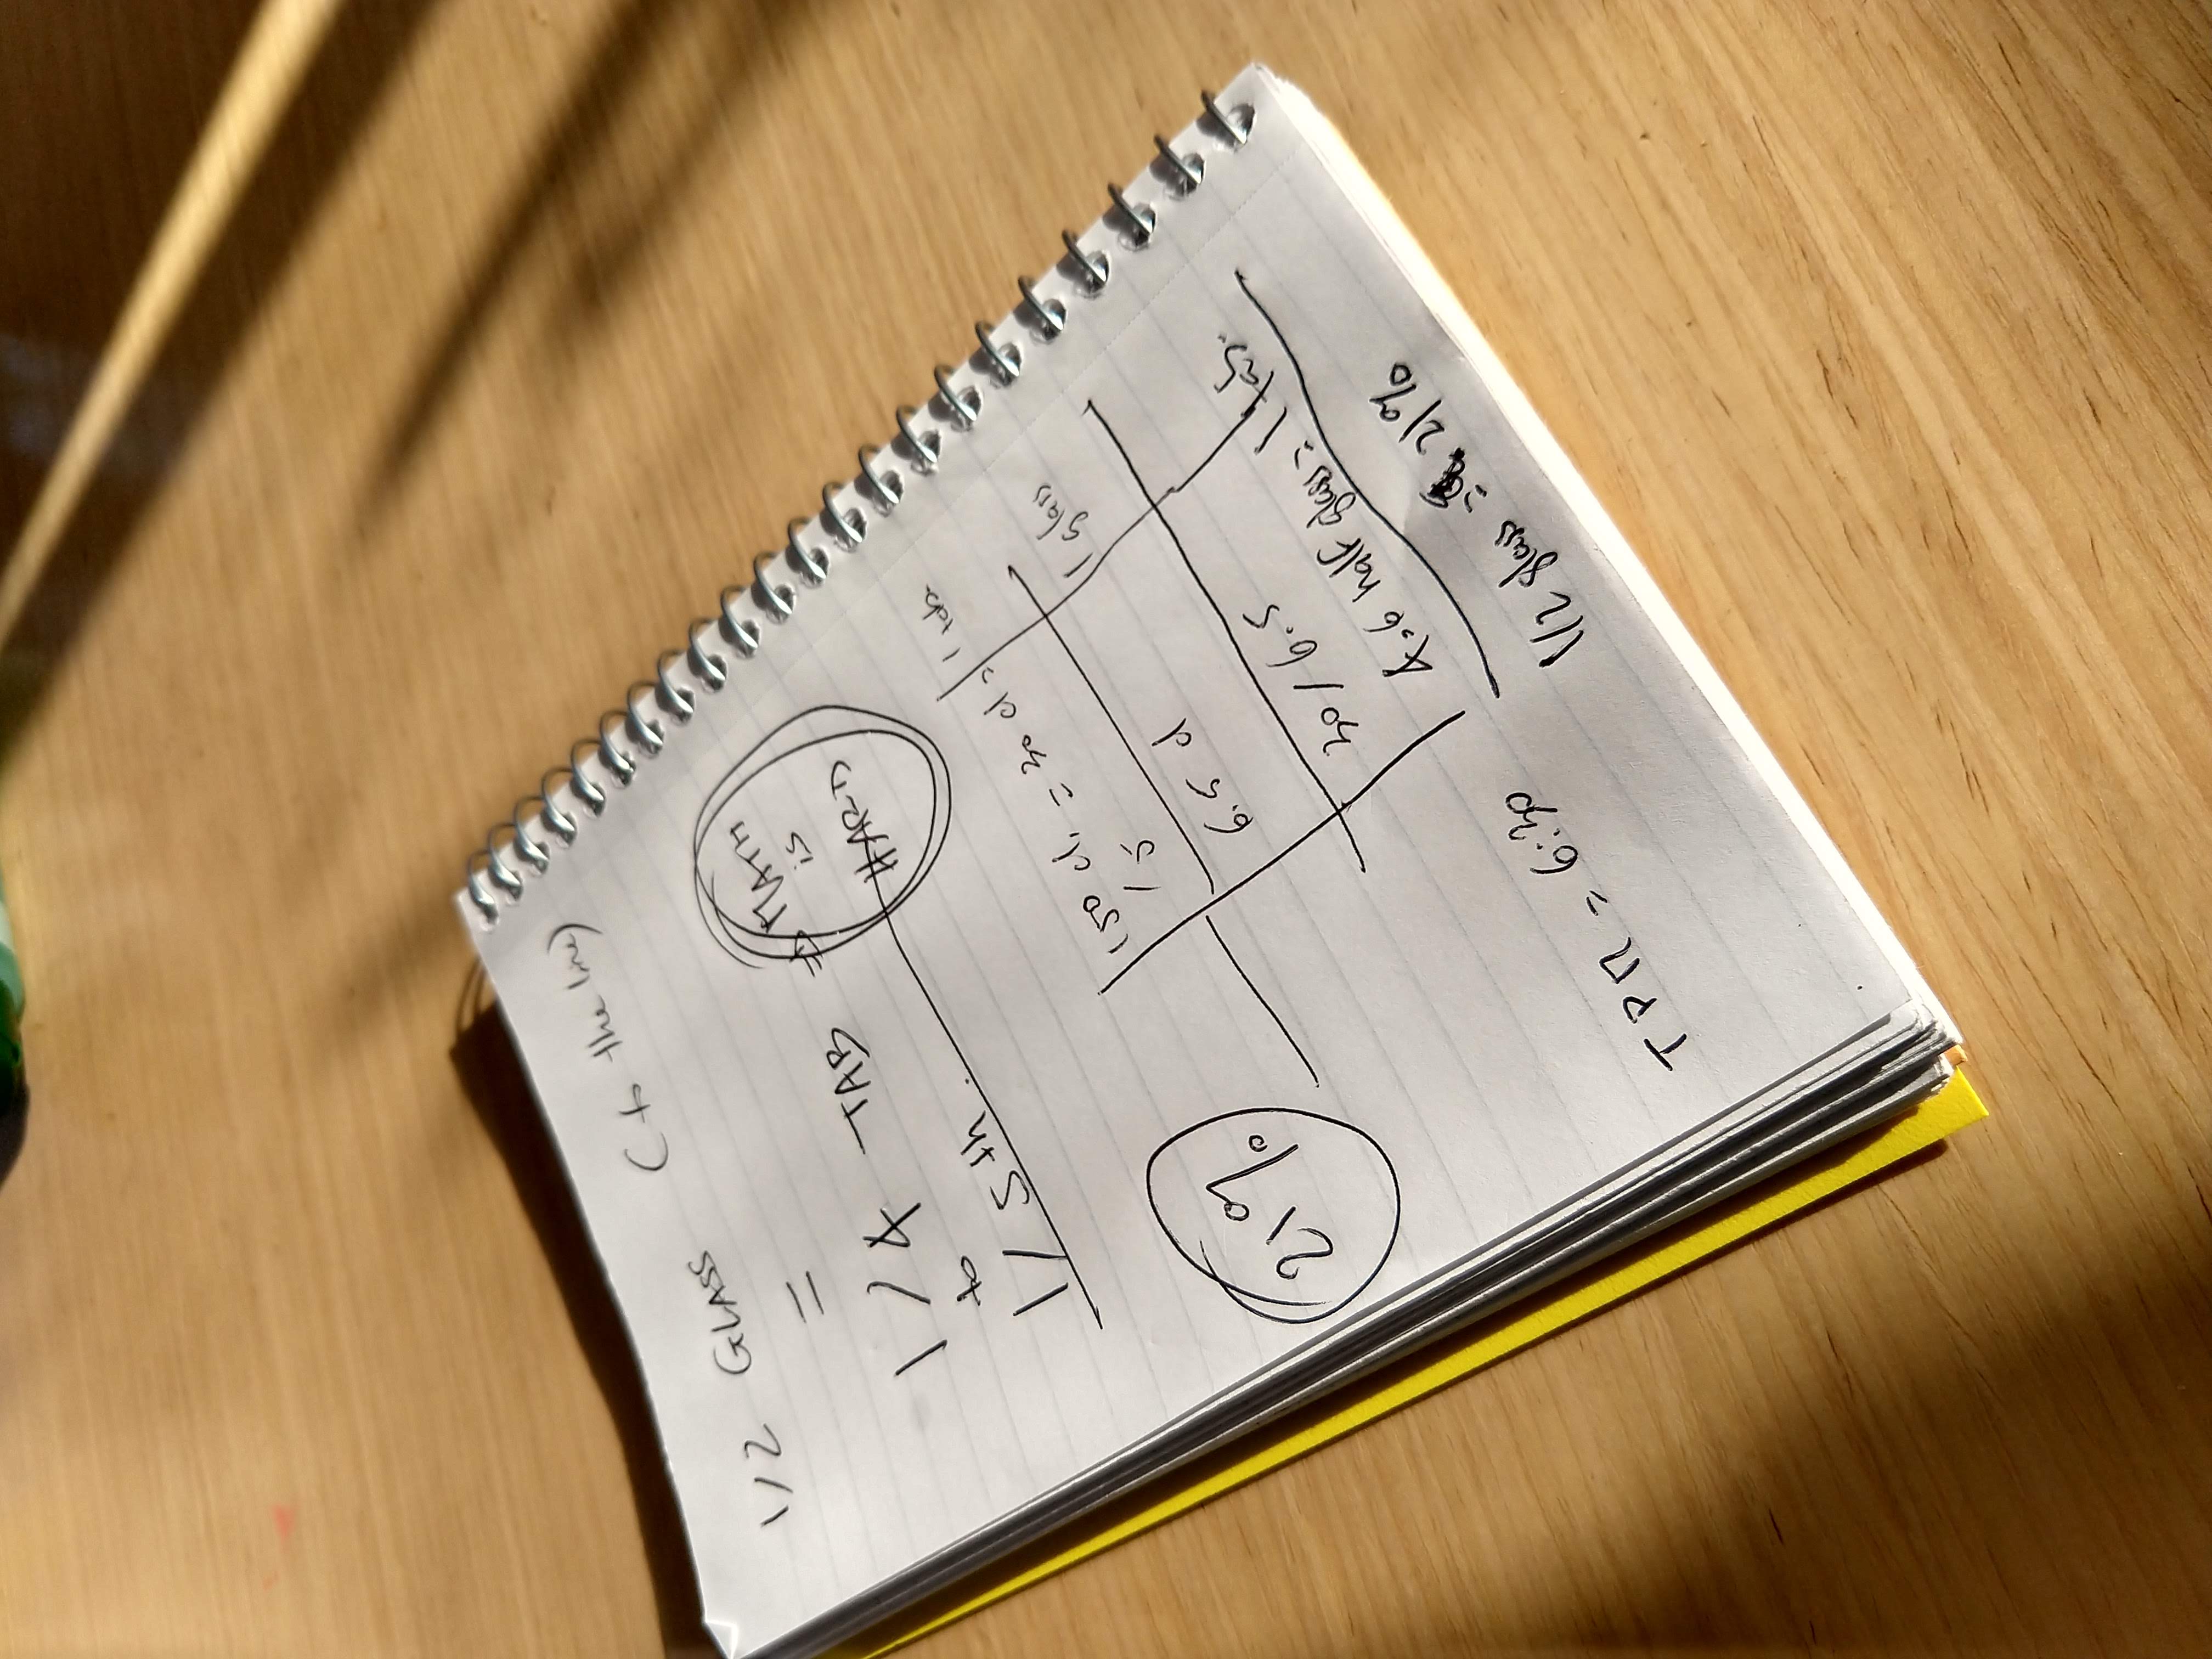 1/2 GLASS (to the line)
=
1/4 TAB ⇒ MATH
is
HARD
to
1/5th.
150 cl. = 30 cl = 1 tab
/5
6.5 cl 1 glass
21%
30/6.5
4.6 half glass = 1 tab.
1/2 glass = 21%
TPM = 6:30